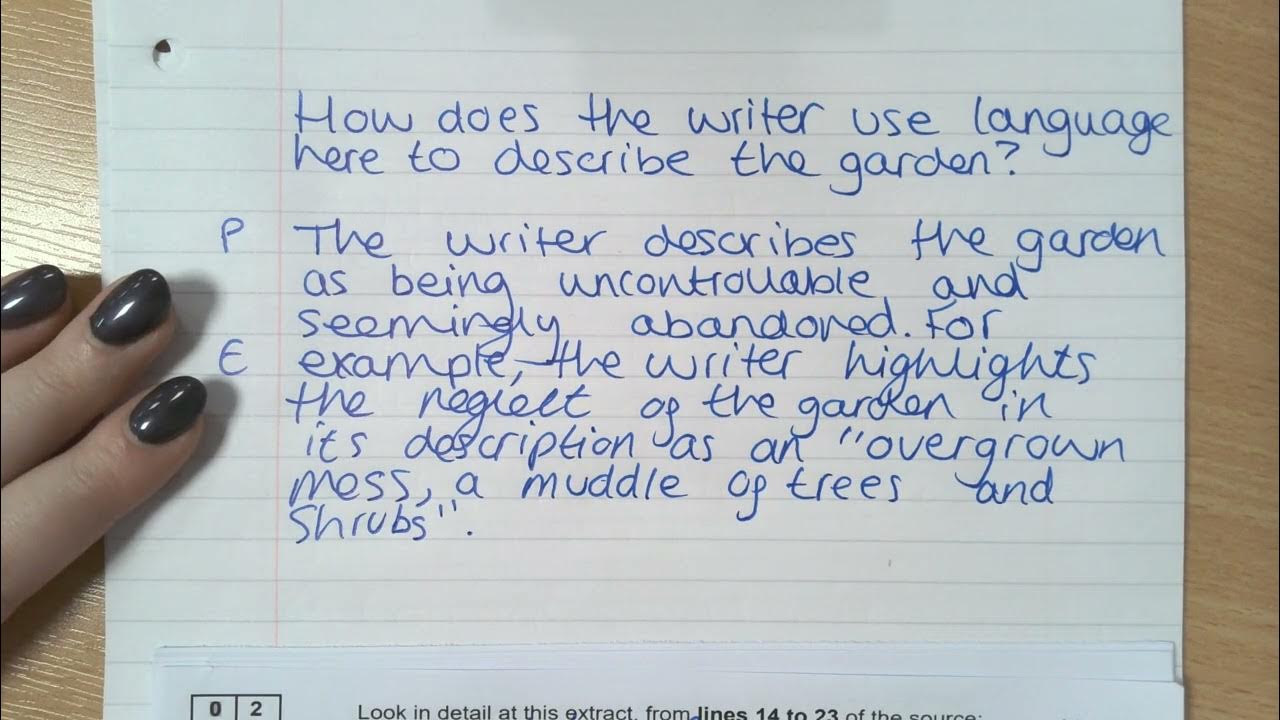 How does the writer use language
here to describe the garden?
P The writer describes the garden
as being uncontrollable and
seemingly abandoned. For
E example, the writer highlights
the neglect of the garden in
its description as an "overgrown
mess, a muddle of trees and
shrubs".
0 2 Look in detail at this extract, from lines 14 to 23 of the source: